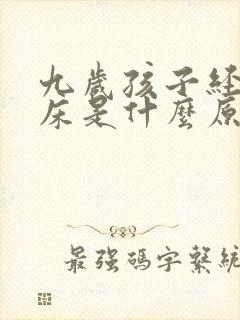 九歲孩子経
床是什麼原
最強碼字繫統